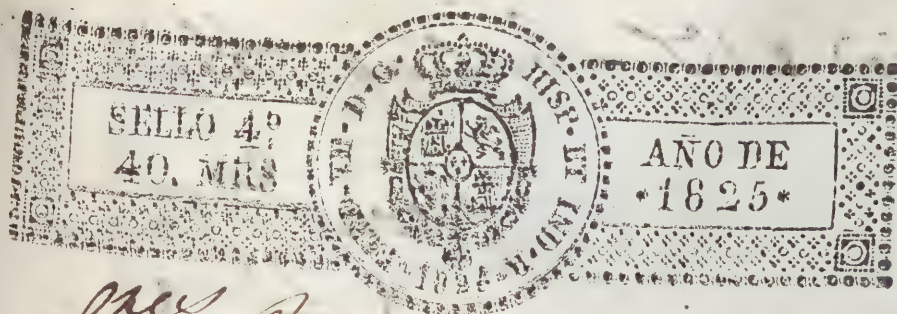 SELLO 4º
40. MRS
D.G. HISP. ET IND. R.
1825
AÑO DE
*1825*